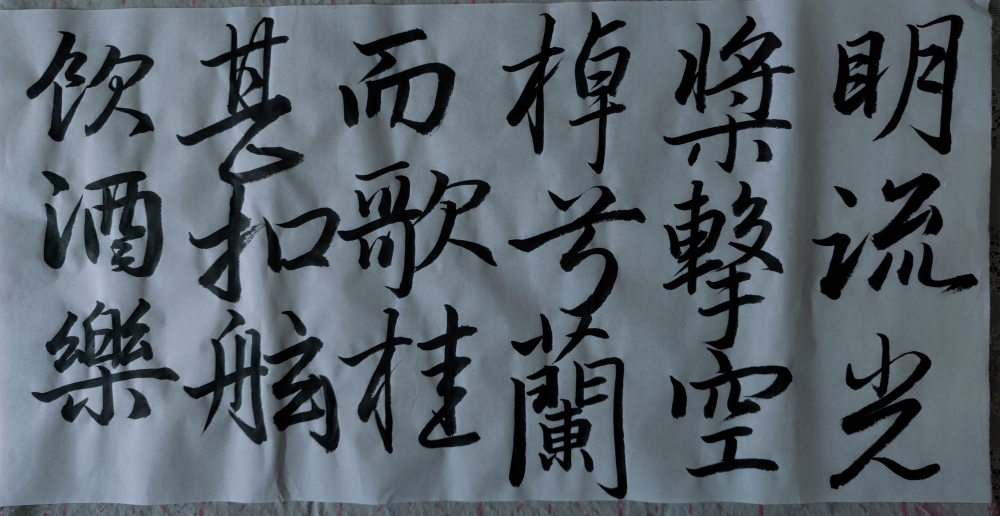 飲酒樂
甚扣舷
而歌桂
棹兮蘭
槳擊空
明流光